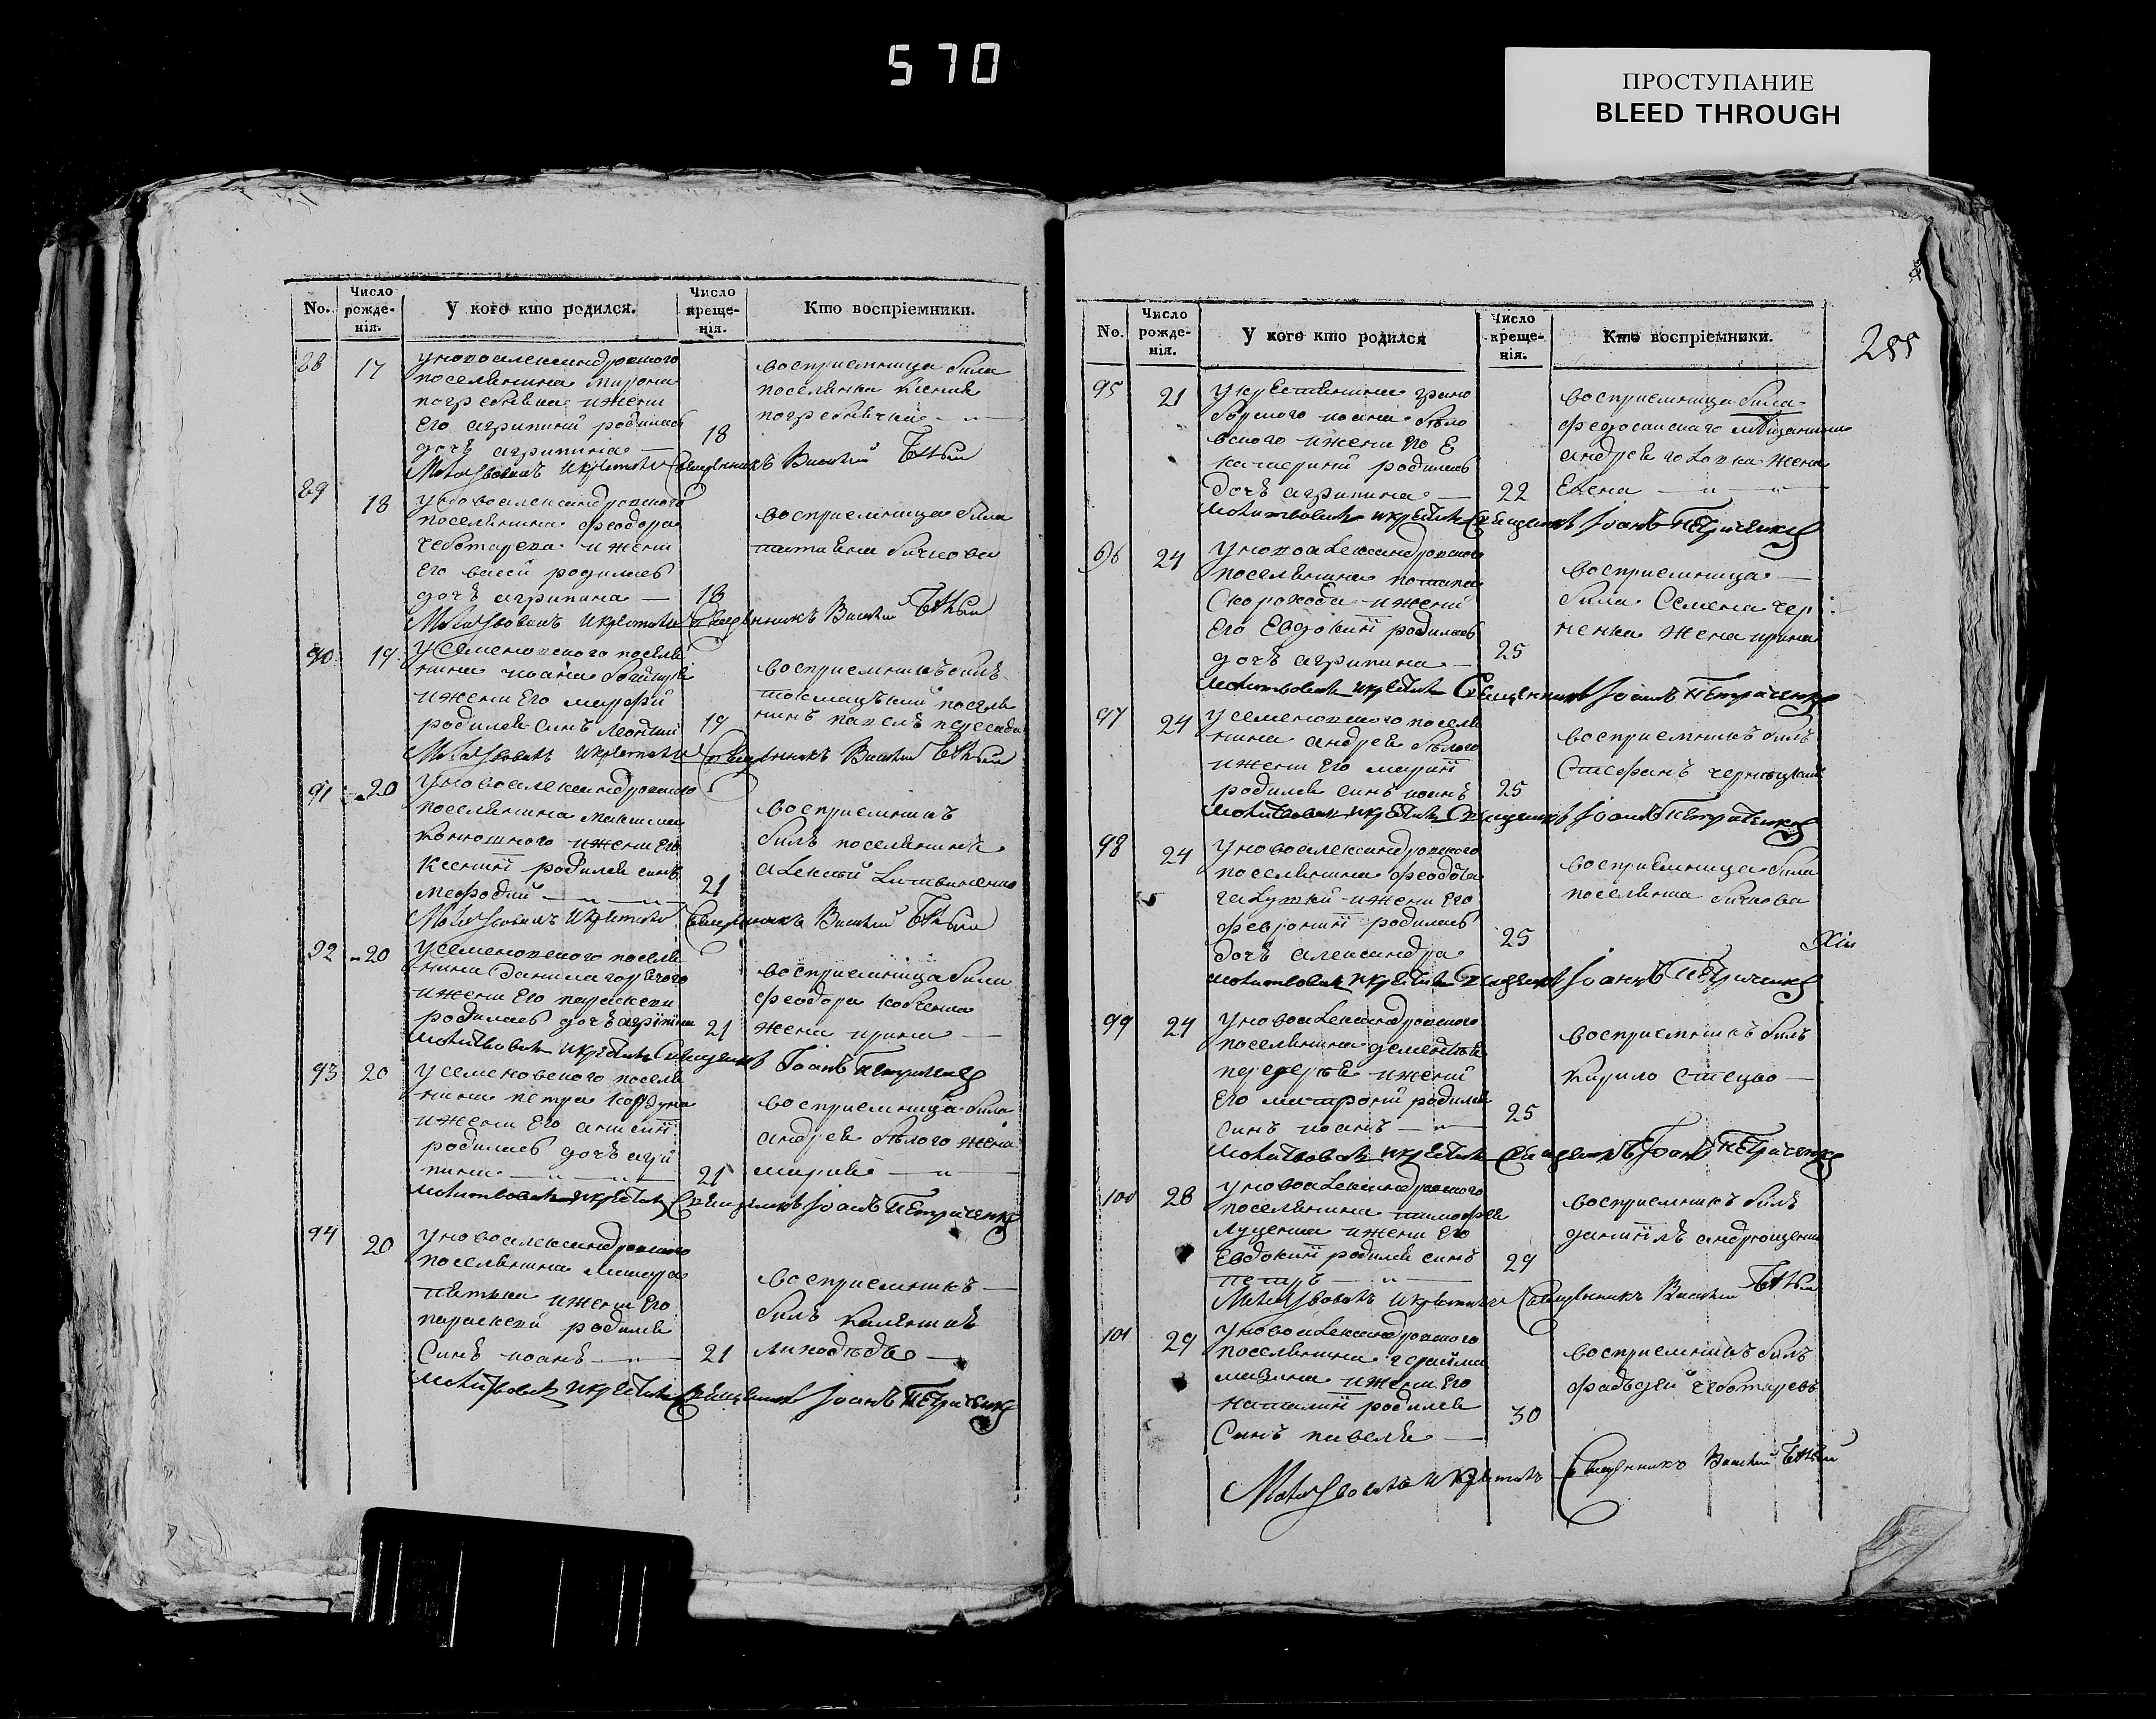 570
ПРОСТУПАНИЕ
BLEED THROUGH
No.
Число рожденія.
У кого кто родился.
Число крещенія.
Кто воспріемники.
88 17
уновоалександровского
поселянина мирона
погребняка ижени
его агрипини родилась
дочъ агрипина
18
восприемница била
поселянка ксения
Молитвовалъ икрестилъ Священникъ Василий
89 18
уновоалександровского
поселянина феодора
чеботарева ижени
его родилась
дочъ агрипина
18
восприемница била
татиана бичкова
Молитвовалъ икрестилъ Священникъ Василий
90 19
усеменовского поселя
нина иоана
ижени его марфи
родился синъ леонтий
19
восприемникъ билъ
токмацъкий поселя
нинъ павелъ
Молитвовалъ икрестилъ Священникъ Василий
91 20
уновоалександровского
поселянина максима
конюшного ижени его
ксении родился синъ
мефодий
21
восприемникъ
билъ поселянинъ
алексий литвиненко
Молитвовалъ икрестилъ Священникъ Василий
92 20
усеменовского поселя
нина данила горячого
ижени его параскеви
родилась дочъ агрипина
21
восприемница била
феодора кобченка
жена ирина
молитвовалъ икрестилъ священникъ Іоанъ Петриченко
93 20
усеменовского поселя
нина петра
ижени его анисии
родилась дочъ агри
пина
21
восприемница била
андрея билого жена
мария
молитвовалъ икрестилъ Священникъ Іоанъ Петриченко
94 20
уновоалександровского
поселянина
ижени его
параскеви родился
Синъ иоанъ
21
восприемникъ
билъ
лиходѣдъ
молитвовалъ икрестилъ Священникъ Іоанъ Петриченко
No.
Число рожденія.
У кого кто родился
Число крещенія.
Кто воспріемники.
285
95 21
укрестянина
иоана било
вского ижени его е
катерини родилась
дочъ агрипина
22
восприемница била
андрея жена
Елена
молитвовалъ икрестилъ Священникъ Іоанъ Петриченко
96 24
уновоалександровского
поселянина потапа
Скорохода ижени
его Евдокии родилась
дочъ агрипина
25
восприемница
била Семена чер
ненка жена ирина
молитвовалъ икрестилъ Священникъ Іоанъ Петриченко
97 24
усеменовского поселя
нина андрея билого
ижени его марии
родился синъ иоанъ
25
восприемникъ билъ
Стефанъ
молитвовалъ икрестилъ Священникъ Іоанъ Петриченко
98 24
уновоалександровского
поселянина феодота
ижени его
февронии родилась
дочъ александра
25
восприемница била
поселянка бичкова
молитвовалъ икрестилъ Священникъ Іоанъ Петриченко
99 24
уновоалександровского
поселянина дементия
ижени
его матрони родился
синъ иоанъ
25
восприемникъ билъ
Кирило стецко
молитвовалъ икрестилъ Священникъ Іоанъ Петриченко
100 28
уновоалександровского
поселянина тимофея
луценка ижени его
Евдокии родился синъ
петръ
29
восприемникъ билъ
даниилъ андрющенко
Молитвовалъ икрестилъ Священникъ Василий
101 29
уновоалександровского
поселянина
ижени его
наталии родился
Синъ павелъ
30
восприемникъ билъ
фадъдей чеботаревъ
Молитвовалъ икрестилъ Священникъ Василий